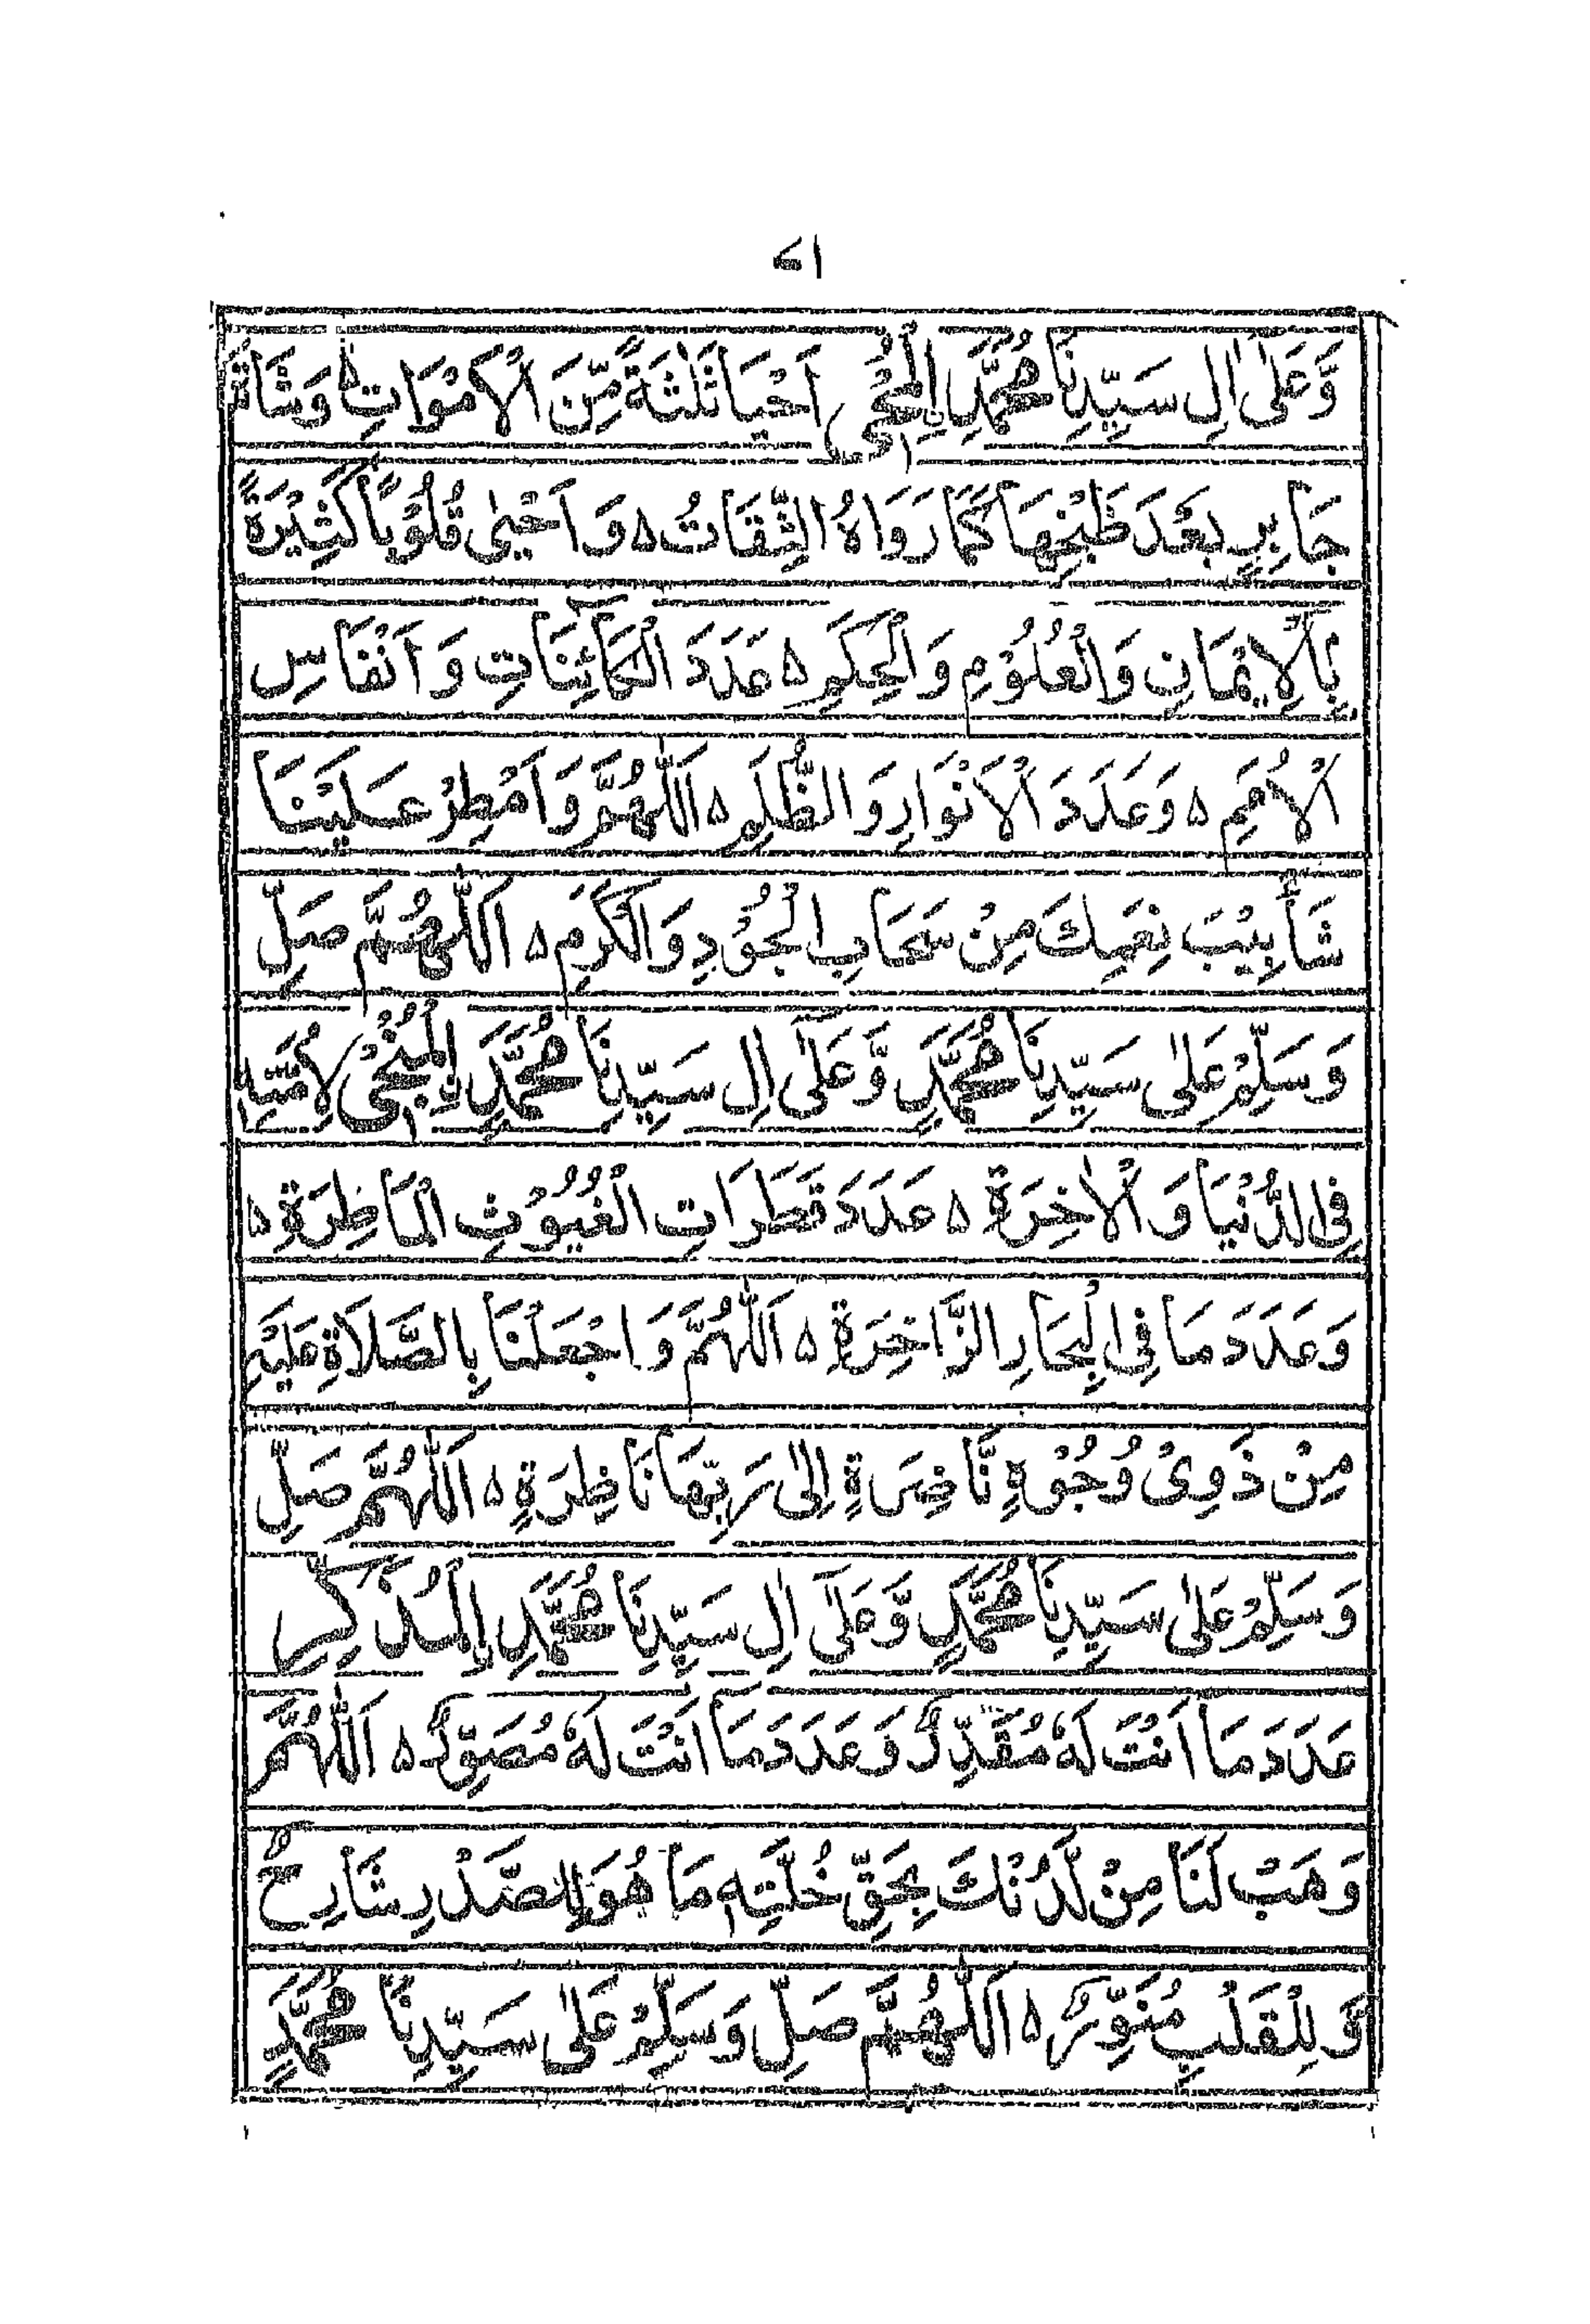 ١٦
وَّعَلٰى اٰلِ سَيِّدِنَا مُحَمَّدِ ۨالْمُحْيِىْ اَحْيَا ثَلٰثَةً مِّنَ الْاَمْوَاتِ ۵ وَشَاةَ
جَابِرٍ بَعْدَ طَبْخِهَا كَمَا رَوَاهُ الثِّقَاتُ ۵ وَ اَحْيٰى قُلُوْبًا كَثِيْرَةً
بِالْاِيْمَانِ وَالْعُلُوْمِ وَالْحِكَمِ ۵ عَدَدَ الْكَآئِنَاتِ وَ اَنْفَاسِ
الْاُمَمِ ۵ وَعَدَدَ الْاَنْوَارِ وَالظُّلَمِ ۵ اَللّٰهُمَّ وَاَمْطِرْ عَلَيْنَا
شَاٰبِيْبَ نِعَمِكَ مِنْ سَحَابِ الْجُوْدِ وَالْكَرَمِ ۵ اَللّٰهُمَّ صَلِّ
وَسَلِّمْ عَلٰى سَيِّدِنَا مُحَمَّدٍ وَّعَلٰٓى اٰلِ سَيِّدِنَا مُحَمَّدِ ۨالْمُنْجِىْ لِاُمَّتِهٖ
فِى الدُّنْيَا وَ الْاٰخِرَةِ ۵ عَدَدَ قَطَرَاتِ الْغُيُوْثِ الْمَاطِرَةِ ۵
وَعَدَدَ مَا فِى الْبِحَارِ الزَّاخِرَةِ ۵ اَللّٰهُمَّ وَ اجْعَلْنَا بِالصَّلَاةِ عَلَيْهِ
مِنْ ذَوِىْ وُجُوْهٍ نَّاضِرَةٍ اِلٰى رَبِّهَا نَاظِرَةٍ ۵ اَللّٰهُمَّ صَلِّ
وَسَلِّمْ عَلٰى سَيِّدِنَا مُحَمَّدٍ وَّعَلٰٓى اٰلِ سَيِّدِنَا مُحَمَّدِ ۨالْمُذَكِّرِ
عَدَدَ مَا اَنْتَ لَهٗ مُقَدِّرٌ وَعَدَدَ مَا اَنْتَ لَهٗ مُصَوِّرٌ ۵ اَللّٰهُمَّ
وَهَبْ لَنَا مِنْ لَّدُنْكَ بِحَقِّ خُلَّتِهٖ مَا هُوَ لِلصَّدْرِ شَارِحٌ
وَّ لِلْقَلْبِ مُنَوِّرٌ ۵ اَللّٰهُمَّ صَلِّ وَسَلِّمْ عَلٰى سَيِّدِنَا مُحَمَّدٍ